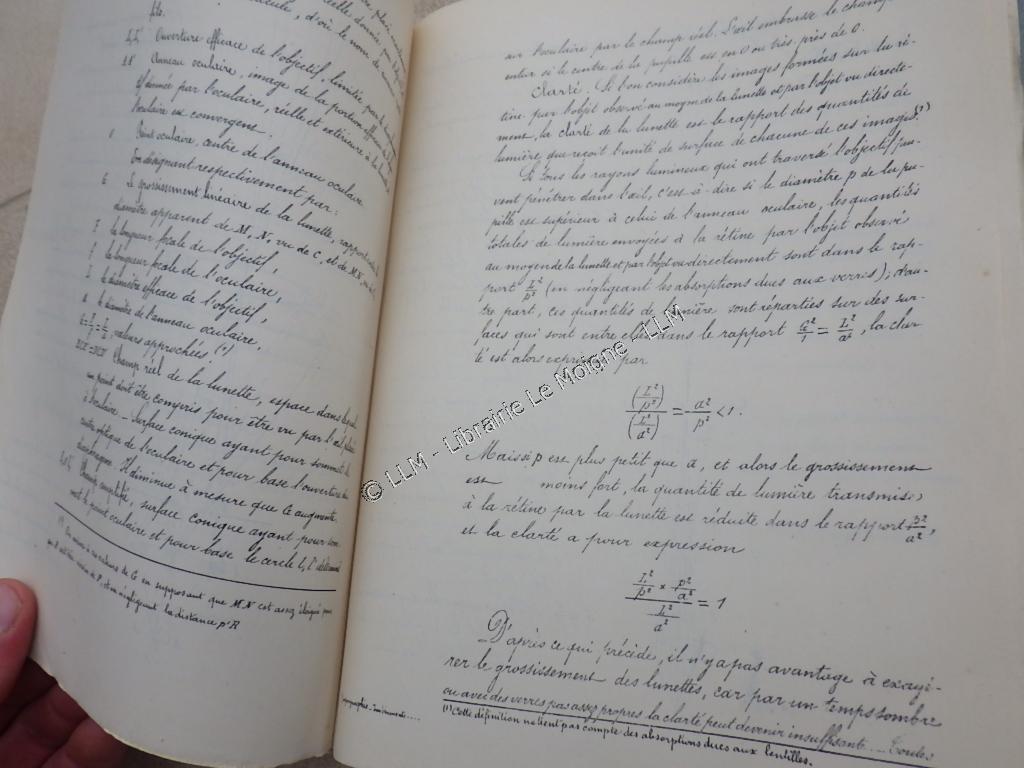 cielles donnés par l'objec
oculaire, d'où le nom de
fils.
L,L' Ouverture efficace de l'objectif, limitée par le
Anneau oculaire, image de la portion efficace de
donnée par l'oculaire, réelle et extérieure à la lunette
l'oculaire est convergent.
o Point oculaire, centre de l'anneau oculaire
En désignant respectivement par:
G Le grossissement linéaire de la lunette, rapport
diamètre apparent de M,N, vu de C, et de MN,
F la longueur focale de l'objectif,
f la longueur focale de l'oculaire,
L le diamètre efficace de l'objectif,
a le diamètre de l'anneau oculaire,
valeurs approchées. (1)
Champ réel de la lunette, espace dans lequel
un point doit être compris pour être vu par l'œil placé
à l'oculaire. Surface conique ayant pour sommet le
centre optique de l'oculaire et pour base l'ouverture du
diaphragme. Il diminue à mesure que G augmente.
Champ simplifié, surface conique ayant pour som-
met le point oculaire et pour base le cercle L,L'
(1) On arrive à ces valeurs de G en supposant que MN est assez éloigné pour
et en négligeant la distance
sur l'oculaire par le champ réel. L'œil embrasse le champ
entier si le centre de la pupille est en O ou très près de O.
Clarté. Si l'on considère les images formées sur la ré-
tine par l'objet observé au moyen de la lunette et par l'objet vu directe-
ment, la clarté de la lunette est le rapport des quantités de
lumière que reçoit l'unité de surface de chacune de ces images. (1)
Si tous les rayons lumineux qui ont traversé l'objectif peu-
vent pénétrer dans l'œil, c'est-à-dire si le diamètre p de la pu-
pille est supérieur à celui de l'anneau oculaire, les quantités
totales de lumière envoyées à la rétine par l'objet observé
au moyen de la lunette et par l'objet vu directement sont dans le rap-
port L²/p² (en négligeant les absorptions dues aux verres); d'au-
tre part, ces quantités de lumière sont réparties sur des sur-
faces qui sont entre elles dans le rapport G²/1 = L²/a², la clar-
té est alors exprimée par
(L²/p²)/(L²/a²) = a²/p² < 1.
Mais si p est plus petit que a, et alors le grossissement
est moins fort, la quantité de lumière transmise
à la rétine par la lunette est réduite dans le rapport p²/a²,
et la clarté a pour expression
(L²/p² × p²/a²)/(L²/a²) = 1
D'après ce qui précède, il n'y a pas avantage à exagé-
rer le grossissement des lunettes, car par un temps sombre
ou avec des verres pas assez propres la clarté peut devenir insuffisante.... Toutes
(1) Cette définition ne tient pas compte des absorptions dues aux lentilles.
© LLM - Librairie Le Moigne - LLM